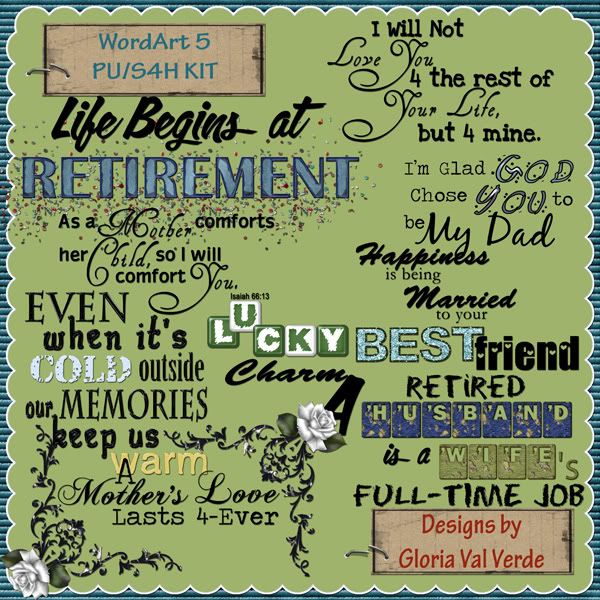 WordArt 5
PU/S4H KIT
I Will Not
Love You
4 the rest of
Your Life,
but 4 mine.
Life Begins at
RETIREMENT
I'm Glad GOD
Chose YOU to
be My Dad
As a Mother comforts
her Child, so I will
comfort You.
Isaiah 66:13
Happiness
is being
Married
to your
BEST friend
EVEN
when it's
COLD outside
our MEMORIES
keep us
warm
LUCKY
Charm
A
RETIRED
HUSBAND
is a WIFE's
FULL-TIME JOB
A
Mother's Love
Lasts 4-Ever
Designs by
Gloria Val Verde